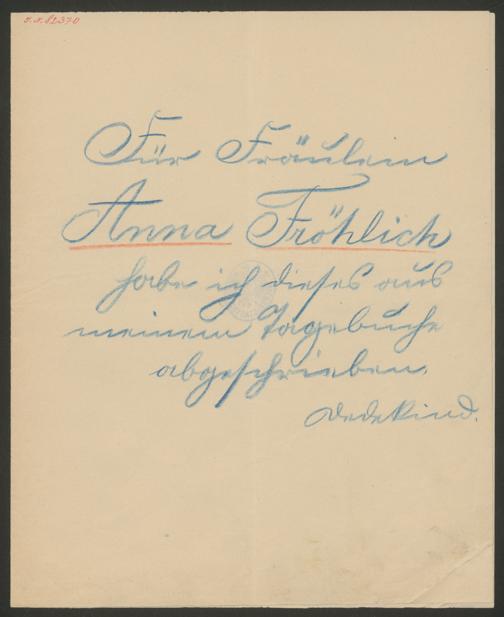 J.N. 82370
Für Fräulein
Anna Fröhlich
habe ich dieses aus
meinem Tagebuche
abgeschrieben.
Dedekind.